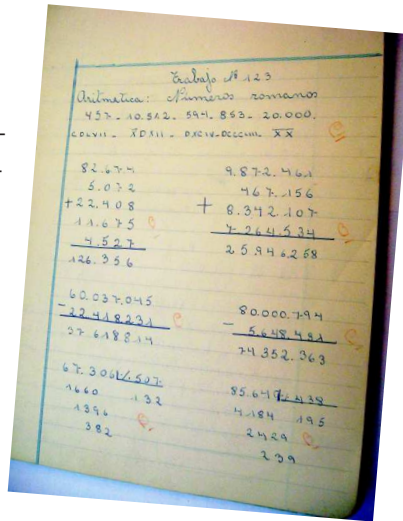 Trabajo Nº 123
Aritmetica: Números romanos
457- 10.512- 594- 853- 20.000.
CDLVII- X̅DXII- DXCIV-DCCCLIII- X̅X̅
82.674
5.072
+22.408
11.675
4.527
126.356
9.872.461
467.156
+ 8.342.107
7.264.534
25.946.258
60.037.045
- 22.418.231
37 618.814
80.000.794
- 5.648.431
74 352.363
67.306 507
1660 132
1396
382
85.649 438
4184 195
2429
239